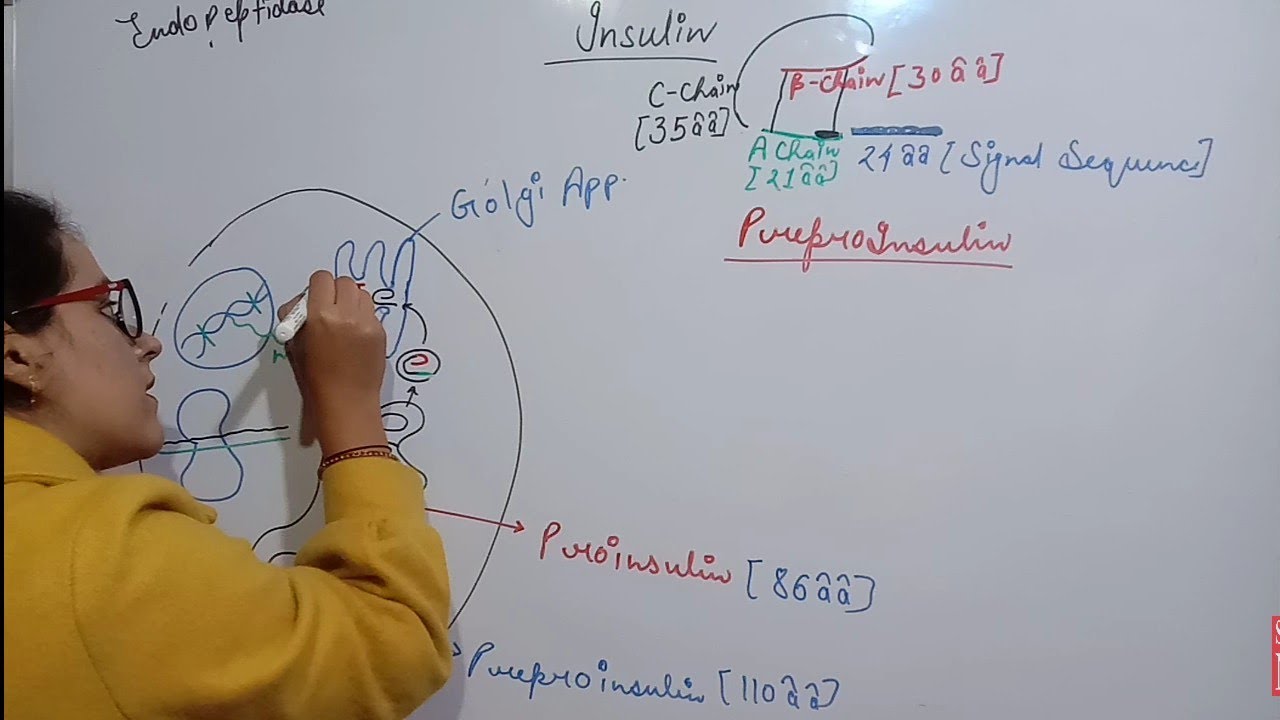 Endopeptidase
Insulin
C-Chain
[35ââ]
β-Chain [30ââ]
A Chain
[21ââ]
24ââ [Signal Sequence]
PreproInsulin
Golgi App.
Proinsulin [86ââ]
Preproinsulin [110ââ]